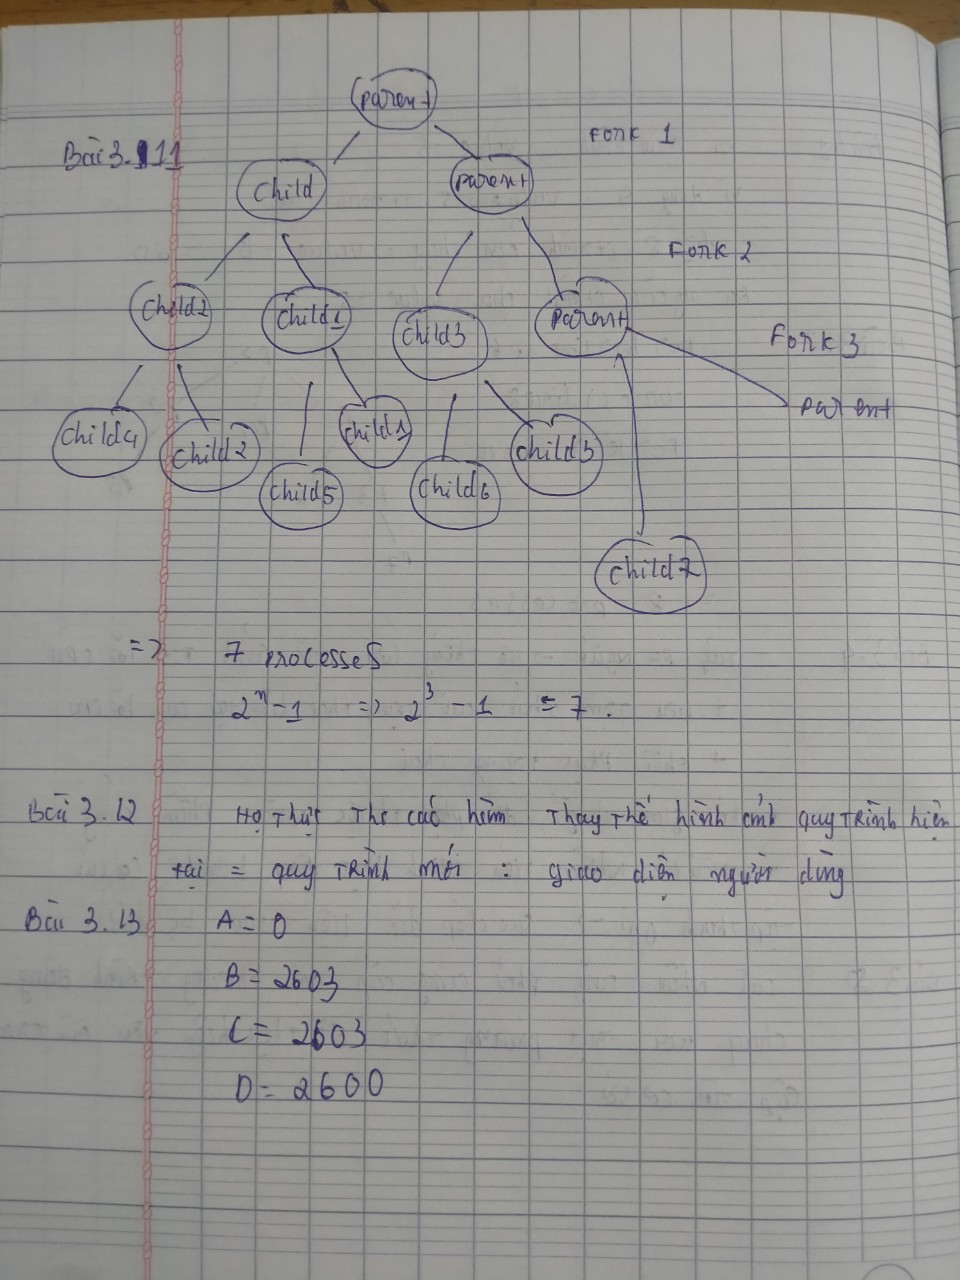 parent
Bài 3.11
Fork 1
Child
parent
Fork 2
Child2
Child1
Child3
Parent
Fork 3
parent
Child4
Child2
Child1
Child5
Child6
Child3
Child7
=> 7 processes
2^n - 1 => 2^3 - 1 = 7.
Bài 3.12 Họ thực thi các hàm thay thế hình ảnh quy trình hiện
tại = quy trình mới : giao diện người dùng
Bài 3.13 A = 0
B = 2603
C = 2603
D = 2600